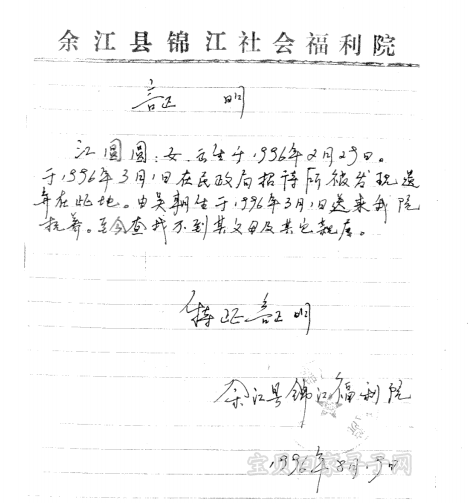 余江县锦江社会福利院
証明
江圆圆:女,出生于1996年2月29日。
于1996年3月1日在民政局招待所被发现遗
弃在此地。由吴朝生于1996年3月1日送来我院
抚养。至今查找不到其父母及其它亲属。
特此証明
余江县锦江福利院
1996年8月5日
宝贝回家寻子网